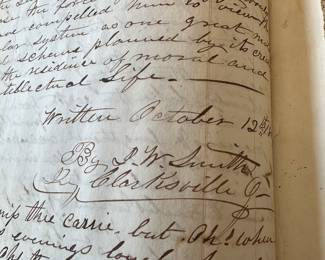 and compelled him to view the
solar system as one great mo
d scheme planned by its crea
the residence of moral and
tellectual life.
Written October 12th 18
By J W Smith
Clarksville
mp the carrie, but Oh! when
evenings